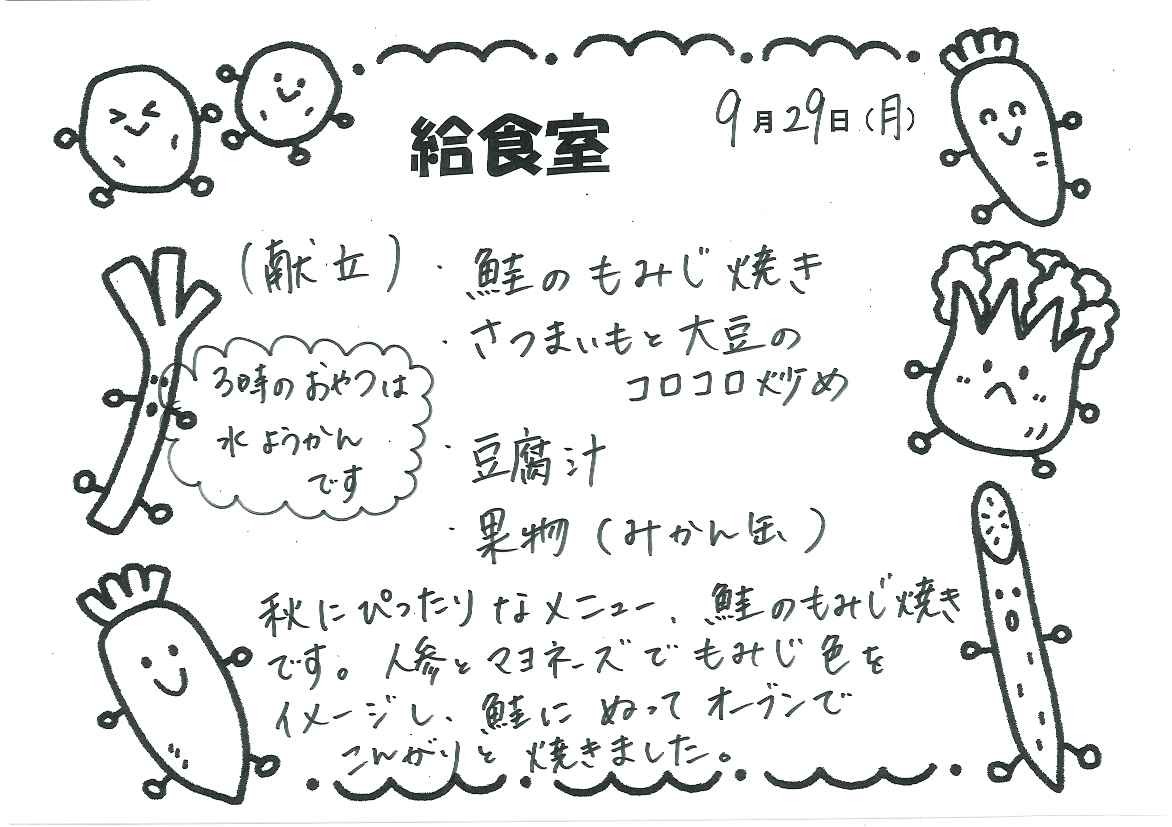 給食室
9月29日(月)
(献立)・鮭のもみじ焼き
・さつまいもと大豆の
コロコロ炒め
・豆腐汁
・果物(みかん缶)
3時のおやつは
水ようかん
です
秋にぴったりなメニュー、鮭のもみじ焼き
です。人参とマヨネーズでもみじ色を
イメージし、鮭にぬってオーブンで
こんがりと焼きました。